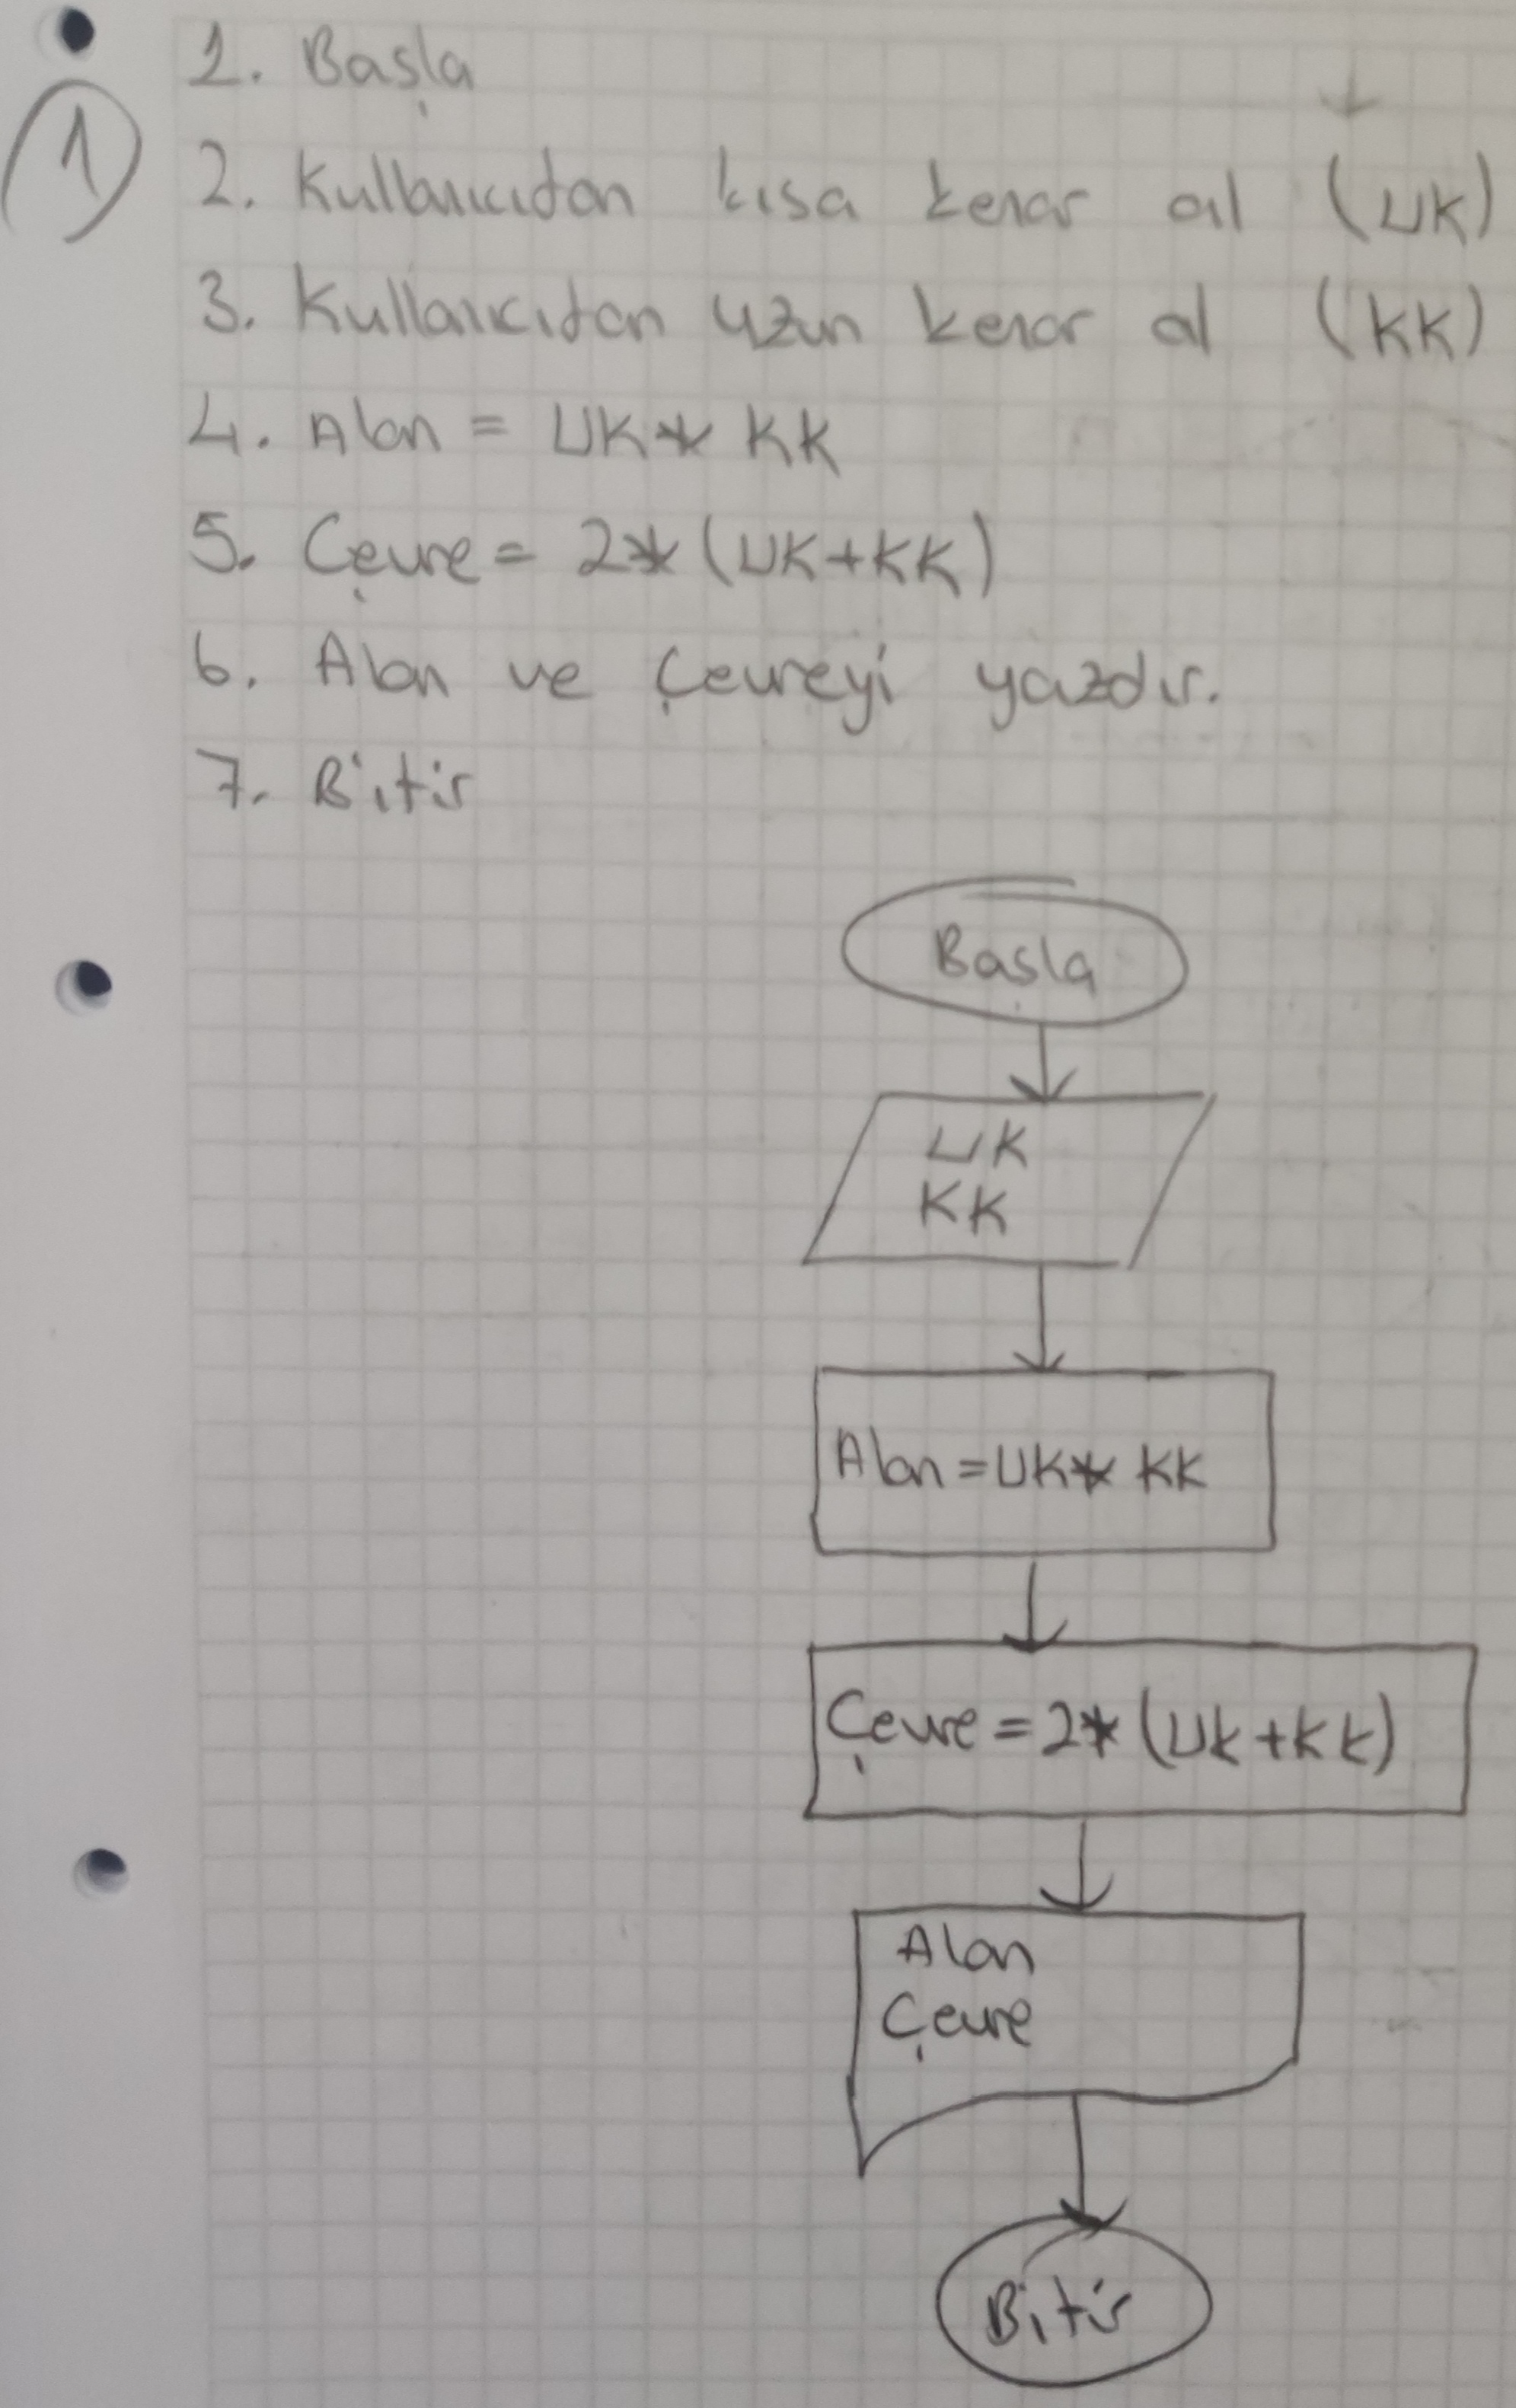 1. Başla
1
2. Kullanıcıdan kısa kenar al (UK)
3. Kullanıcıdan uzun kenar al (KK)
4. Alan = UK* KK
5. Çevre = 2*(UK+KK)
6. Alan ve Çevreyi yazdır.
7. Bitir
Başla
UK
KK
Alan = UK* KK
Çevre = 2*(Uk+KK)
Alan
Çevre
Bitir